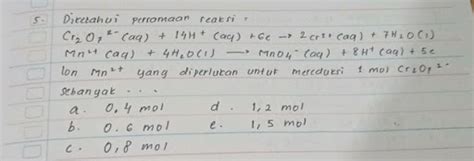 5. Diketahui persamaan reaksi :
Cr₂O₇²⁻ (aq) + 14H⁺ (aq) + 6e → 2Cr³⁺ (aq) + 7H₂O (l)
Mn²⁺ (aq) + 4H₂O (l) → MnO₄⁻ (aq) + 8H⁺ (aq) + 5e
Ion Mn²⁺ yang diperlukan untuk mereduksi 1 mol Cr₂O₇²⁻
sebanyak . . .
a. 0,4 mol d. 1,2 mol
b. 0.6 mol e. 1,5 mol
c. 0,8 mol